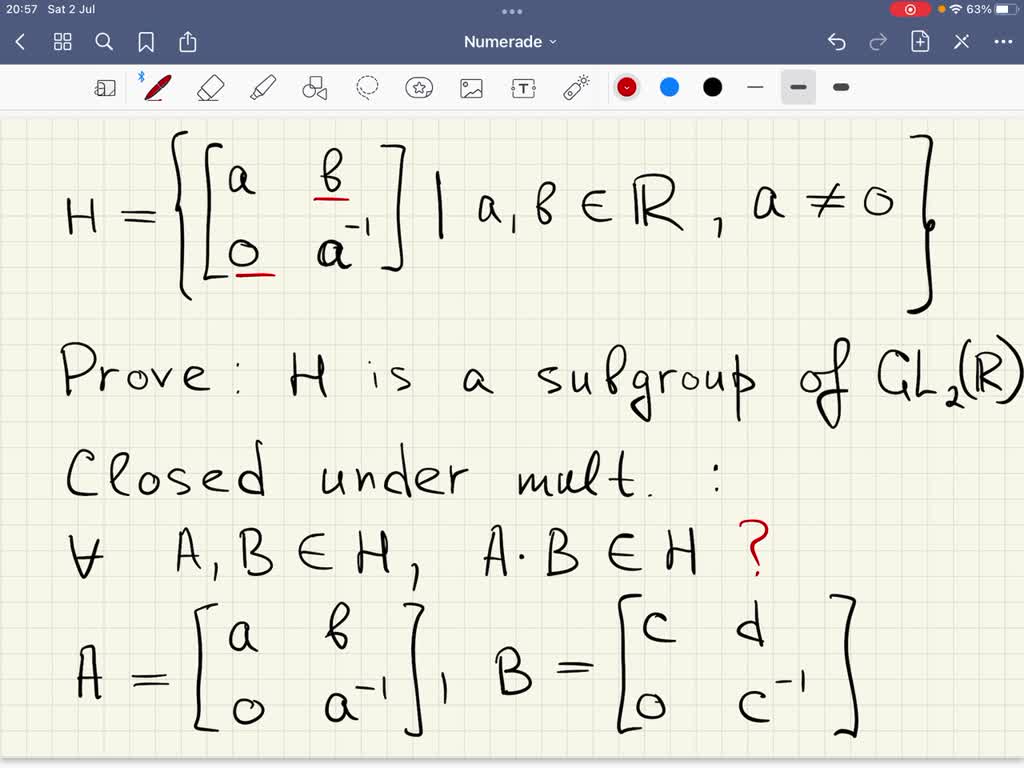 20:57 Sat 2 Jul 63%
Numerade
H = { [ a b ; 0 a⁻¹ ] | a, b ∈ ℝ, a ≠ 0 }
Prove: H is a subgroup of GL₂(ℝ)
Closed under mult. :
∀ A, B ∈ H, A · B ∈ H ?
A = [ a b ; 0 a⁻¹ ], B = [ c d ; 0 c⁻¹ ]